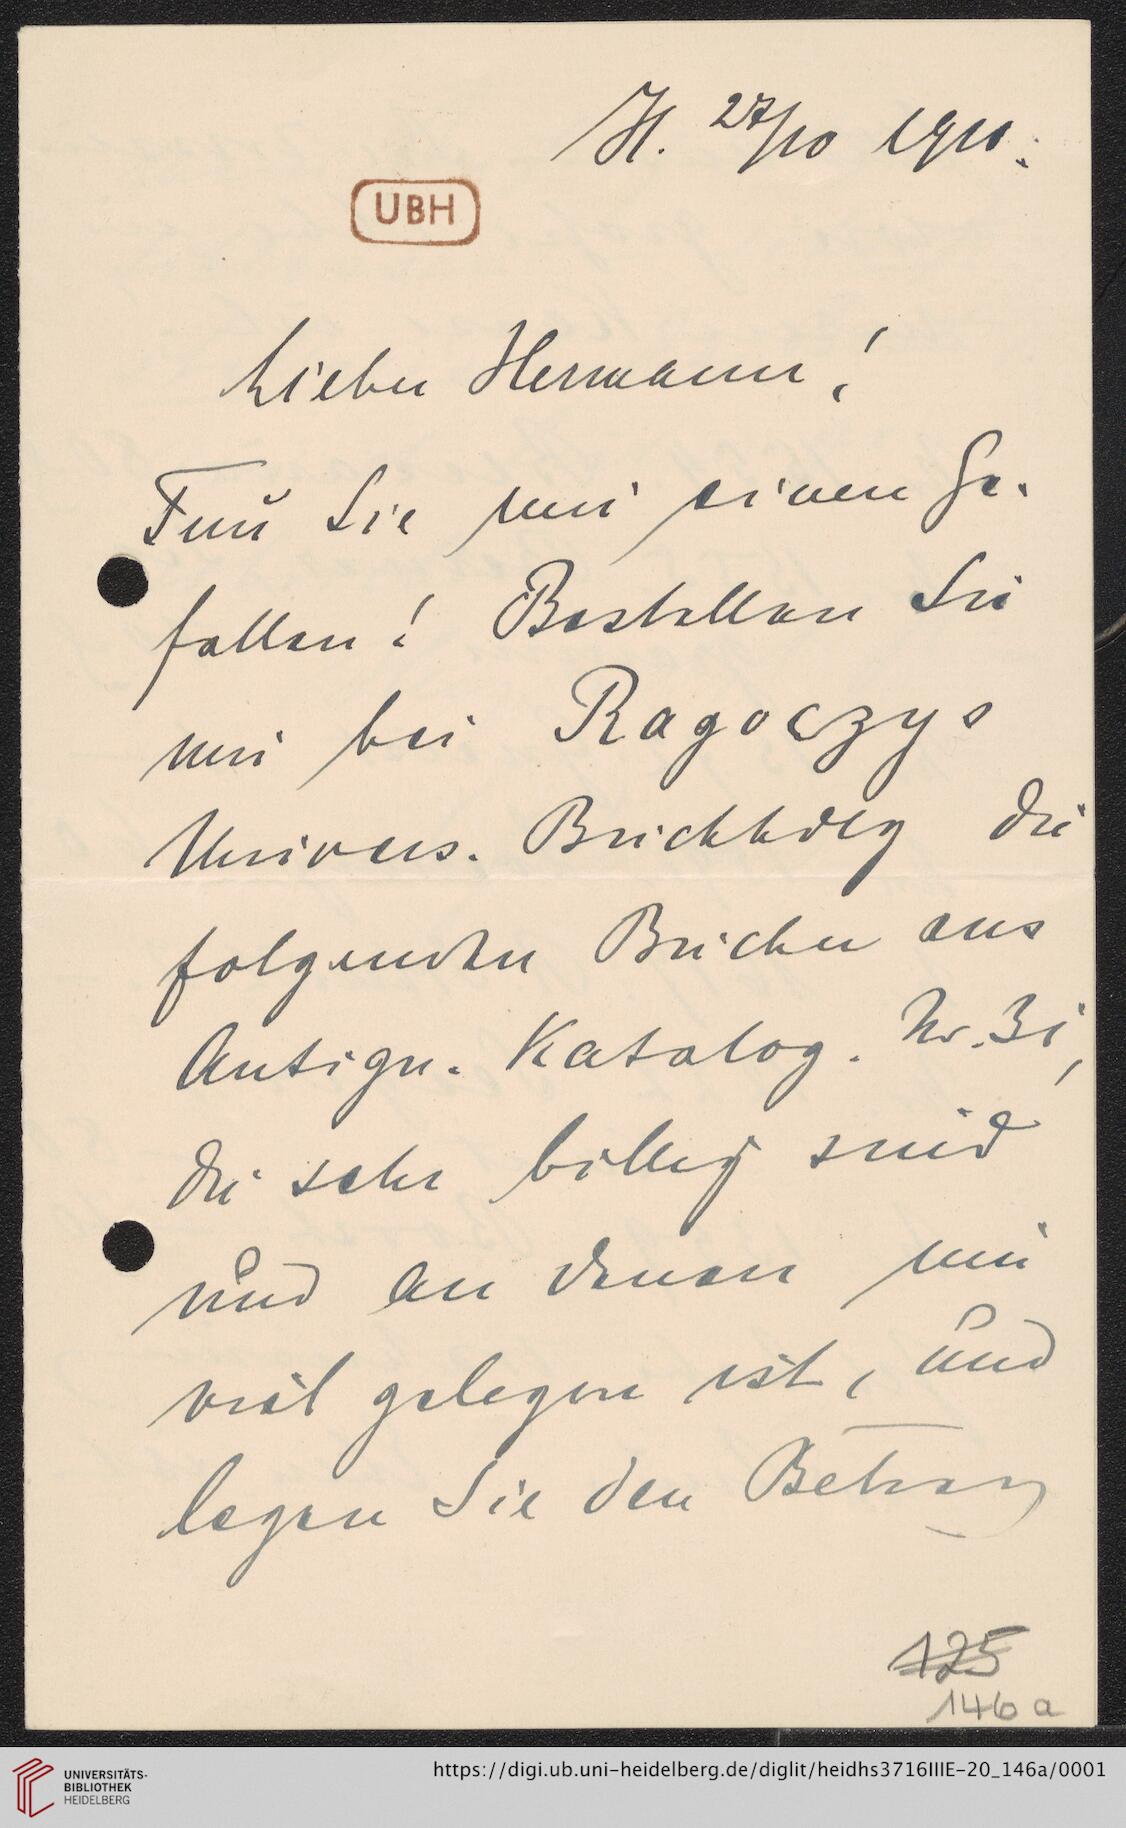 H. 27/10 1910.
UBH
Lieber Hermann!
Tun Sie mir einen Ge-
fallen! Bestellen Sie
mir bei Ragoczys
Univers. Buchhdlg die
folgenden Bücher aus
Antiqu. Katalog. Nr. 31,
die sehr billig sind
und an denen mir
viel gelegen ist, und
legen Sie den Betrag
125
146 a
UNIVERSITÄTS-
BIBLIOTHEK
HEIDELBERG
https://digi.ub.uni-heidelberg.de/diglit/heidhs3716IIIE-20_146a/0001